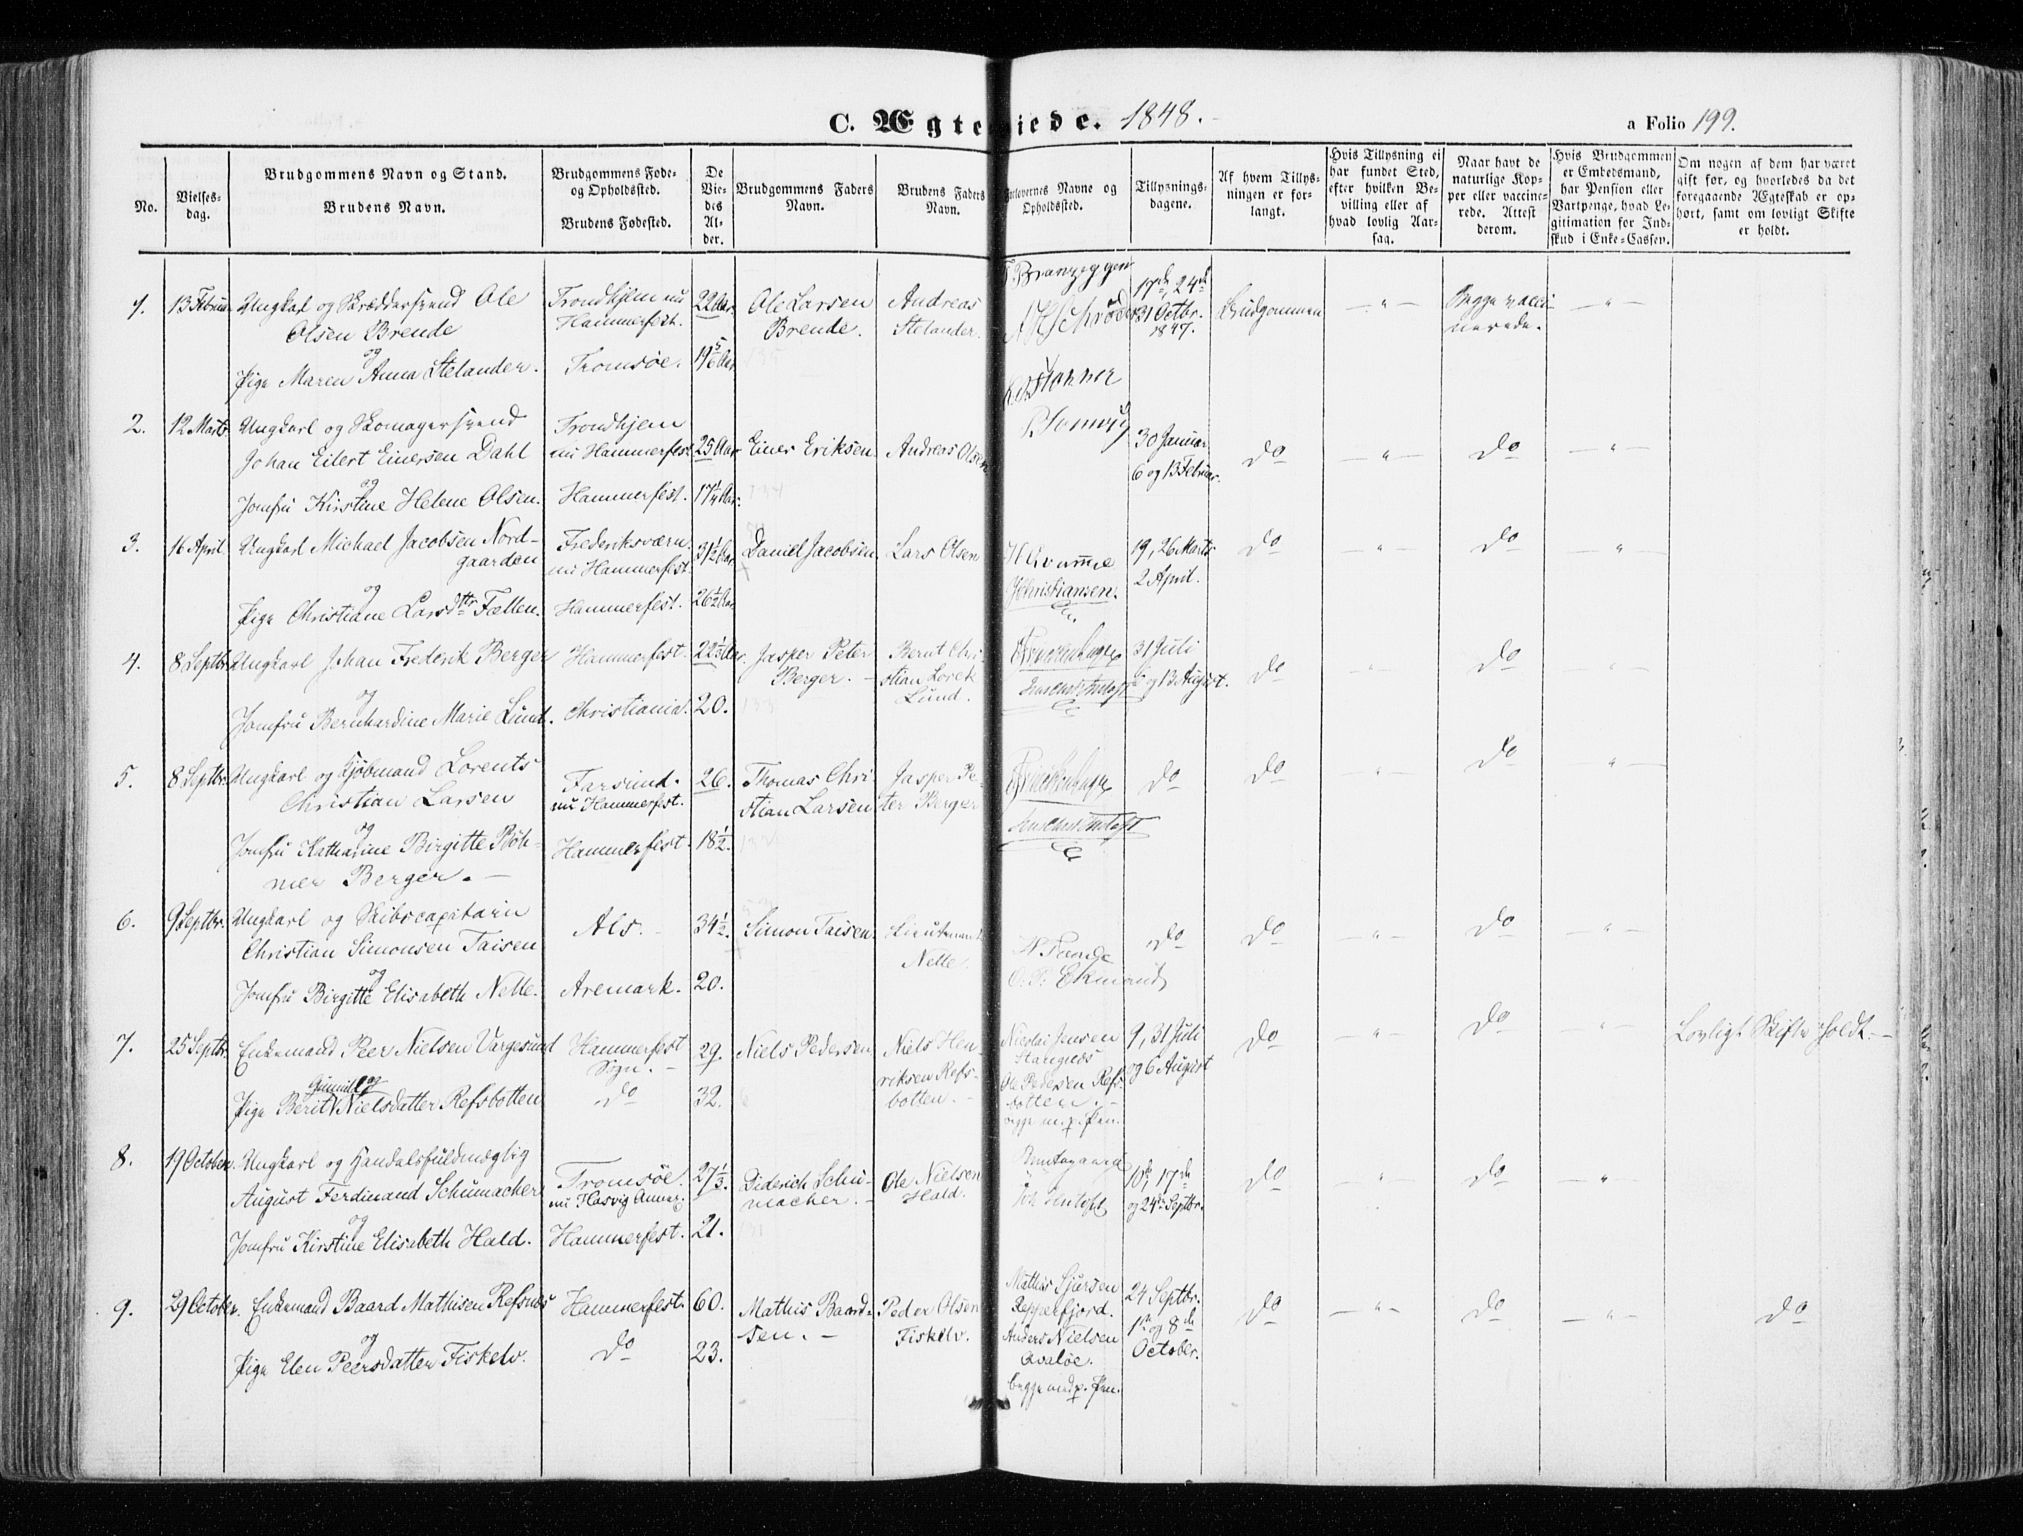 C. Ægteviede. 1848.
a Folio 199.
No.
Vielses-
dag.
Brudgommens Navn og Stand.
Brudens Navn.
Brudgommens Føde-
og Opholdssted.
Brudens Fødested.
De
Vie-
des
Al-
der.
Brudgommens Faders
Navn.
Brudens Faders
Navn.
Forlovernes Navne og
Opholdssted.
Tillysnings-
dagene.
Af hvem Tillys-
ningen er for-
langt.
Hvis Tillysning ei
har fundet Sted,
efter hvilken Be-
villing eller af
hvad lovlig Aar-
sag.
Naar havt de
naturlige Kop-
per eller vaccine-
rede. Attest
derom.
Hvis Brudgommen
er Embedsmand,
har Pension eller
Vartpenge, hvad Le-
gitimation for Ind-
skud i Enke-Cassen.
Om nogen af dem har været
gift før, og hvorledes da det
foregaaende Ægteskab er op-
hørt, samt om lovligt Skifte
er holdt.
1. 13 Februar Ungkarl og Skrædersvend Ole
Olsen Brende
og
Pige Maren Anna Stelander.
Trondhjem nu
Hammerfest.
Tromsøe.
22 Aar.
19 5/6 Aar
Ole Larsen
Brende.
Andreas
Stelander.
17de, 24de
31 Octbr.
1847.
Brudgommen
— " —
Begge vacci-
nerede.
— " —
2. 12 Marts Ungkarl og Skomagersvend
Johan Eilert Einersen Dahl
og
Jomfru Kirstine Helene Olsen.
Trondhjem
nu Hammerfest
Hammerfest.
25 Aar
17 1/4 Aar.
Einer Eriksen
Andreas Olsen
30 Januar
6 og 13 Februar.
do
— " —
do
— " —
3. 16 April Ungkarl Michael Jacobsen Nord-
gaarden
og
Pige Christiane Larsdtr Fællen.
Frederiksværn
nu Hammerfest.
Hammerfest.
31 1/2 Aar
26 1/2 Aar
Daniel Jacobsen
Lars Olsen
Christiansen.
19, 26 Marts
2 April.
do
— " —
do
— " —
4. 8 Septbr. Ungkarl Johan Frederik Berger
og
Jomfru Bernhardine Marie Lund.
Hammerfest.
Christiania.
22 1/3 Aar.
20.
Jasper Peter
Berger. —
Bernt Chri-
stian Lorck
Lund.
31 Juli
6 og 13 August.
do
— " —
do
— " —
5. 8 Septbr. Ungkarl og Kjøbmand Lorents
Christian Larsen
og
Jomfru Katharine Birgitte Bøh-
mer Berger. —
Farsund
nu Hammerfest.
Hammerfest.
26.
18 1/2.
Thomas Chri-
stian Larsen
Jasper Pe-
ter Berger
do
do
— " —
do
— " —
6. 9 Septbr. Ungkarl og Skibscapitain
Christian Simonsen Taisen
og
Jomfru Birgitte Elisabeth Nelle.
Als. —
Aremark.
34 1/2.
20.
Simon Taisen.
Lieutenant
Nelle.
Ekmand
do
do
— " —
do
— " —
7. 25 Septbr. Enkemand Peer Nielsen Vargesund
Gunnild
og
Pige Berit Nielsdatter Refsbotten
Hammerfest
Sogn. —
do
29.
32.
Niels Pedersen
Niels Hen-
riksen Refs-
botten. —
Nicolai Jensen
Ole Pedersen Refs-
botten. —
begge m. p. Pen.
9, 31 Juli
og 6 August
do
— " —
do
— " —
Lovligt Skifte holdt. —
8. 19 October. Ungkarl og Handelsfuldmægtig
August Ferdinand Schumacher
og
Jomfru Kirstine Elisabeth Hald.
Tromsøe.
nu Hasvig Annex.
Hammerfest.
27 1/3.
21.
Diderich Schu-
macher. —
Ole Nielsen
Hald.
10de, 17de
og 24de Septbr.
do
— " —
do
— " —
9. 29 October. Enkemand Baard Mathisen Refsnes
og
Pige Elen Peersdatter Fiskelv.
Hammerfest.
do
60.
23.
Mathis Baard-
sen. —
Peder Olsen
Fiskelv.
Mathis Sjursen
Repperfjord.
Anders Nielsen
Qvaløe.
begge md p. Pen.
24 Septbr.
1ste og 8de
October.
do
— " —
do
— " —
do